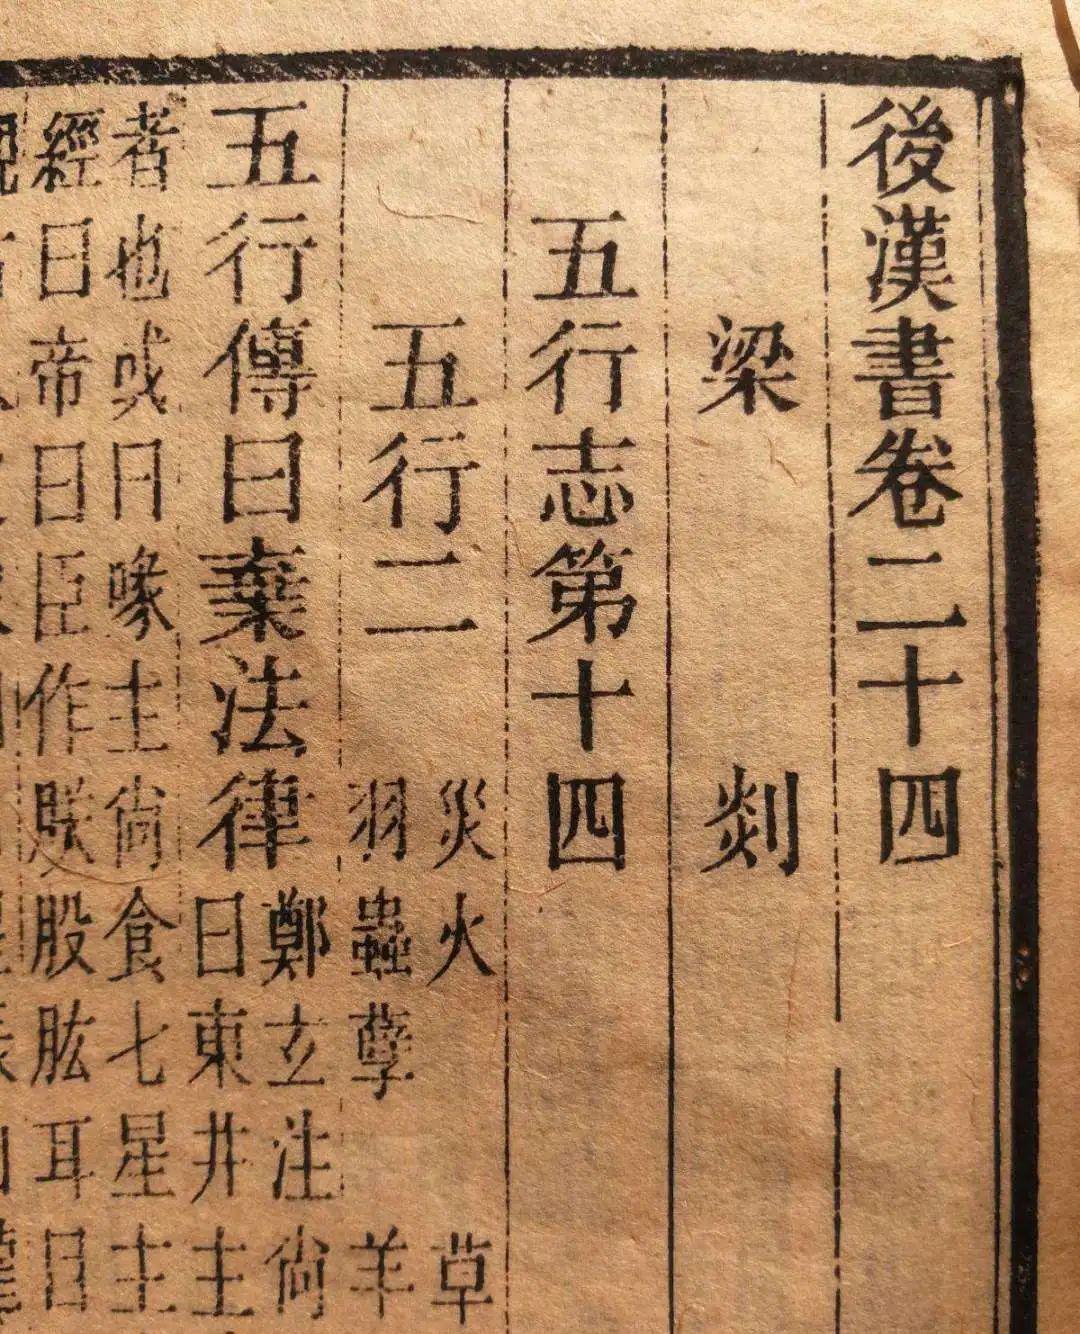 後漢書卷二十四
梁 剡
五行志第十四
五行二
災火 草
羽蟲孽 羊
五行傳曰棄法律
鄭玄注尚
曰東井主
者也或曰喙主尚食七星主
經曰帝曰臣作朕股肱耳目